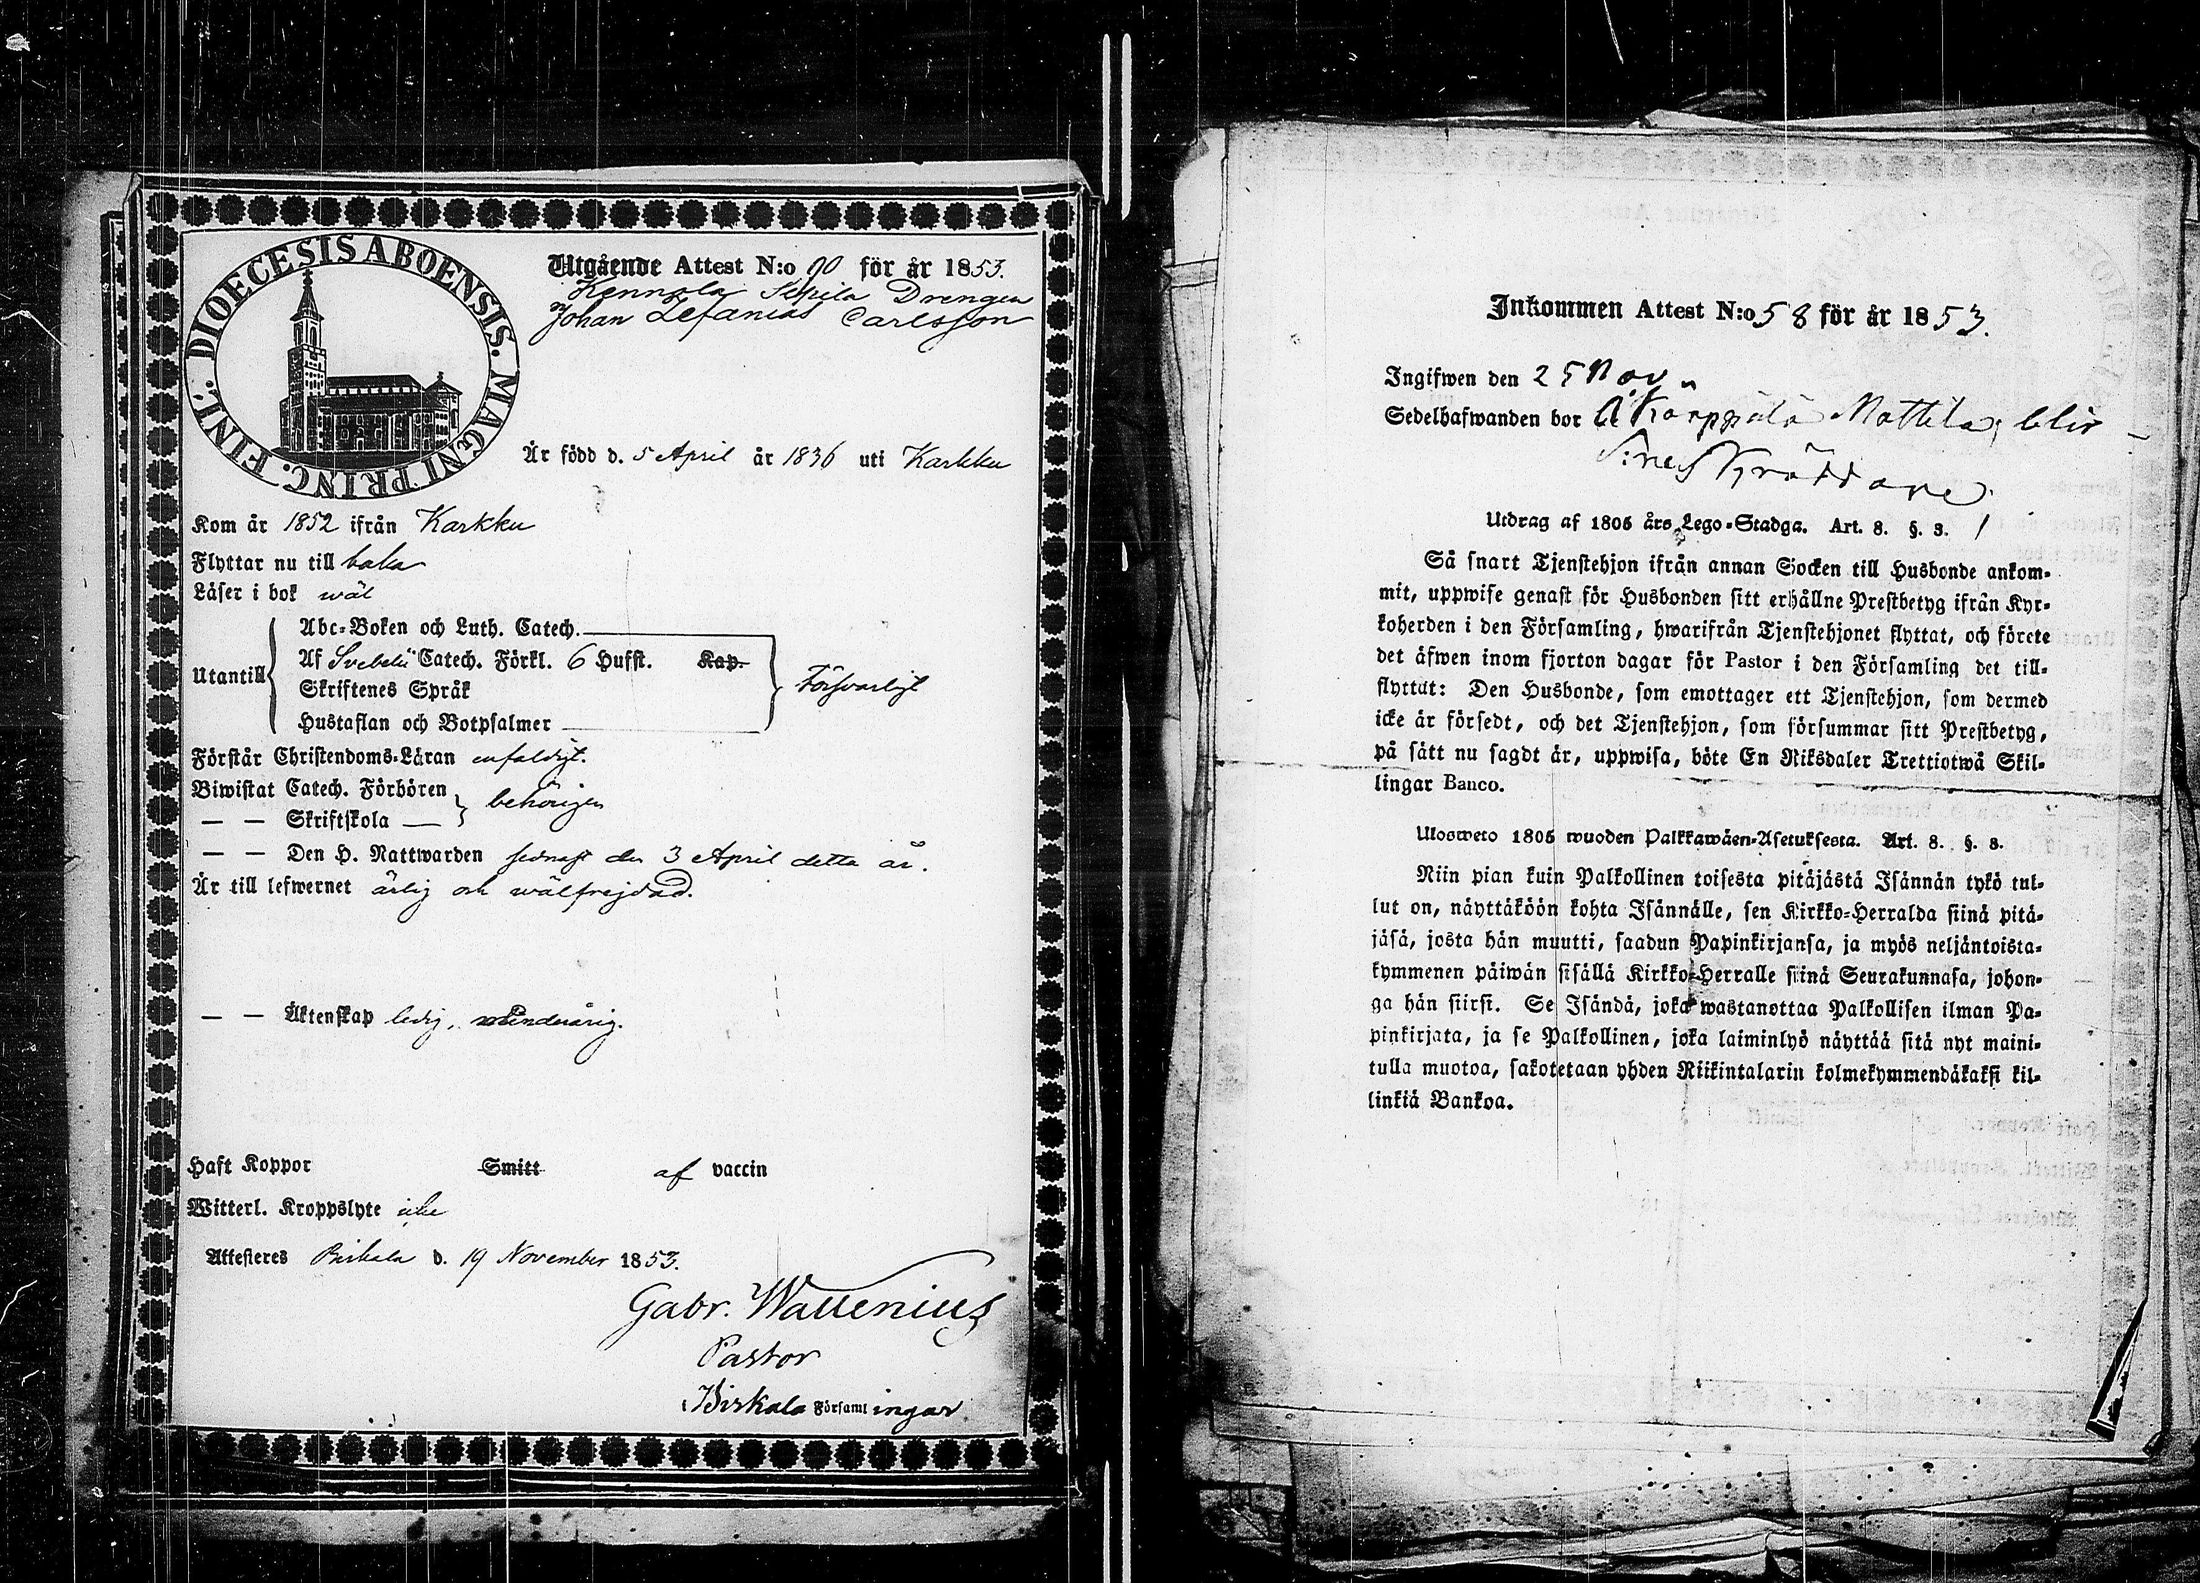 DIOECESIS ABOENSIS. MAGNI PRINC. FINL.
Utgående Attest N:o 90 för år 1853.
Kennola Seppila Drengen
Johan Zefanias Carlsson
Är född d. 5 April år 1836 uti Karkku
Kom år 1852 ifrån Karkku
Flyttar nu till baka
Läser i bok wäl
Utantill
Abc-Boken och Luth. Catech.
Af Svebelii Catech. Förkl. 6 Hufst. Kap.
Skriftenes Språk
Hustaflan och Botpsalmer
Försvarligt
Förstår Christendoms-Läran enfaldigt.
Biwistat Catech. Förhören
— — Skriftskola —
behörigen
— — Den H. Nattwarden sednast den 3 April detta år.
Är till lefwernet ärlig och wälfrejdad.
— — Äktenskap ledig, minderårig.
Haft Koppor Smitt af vaccin
Witterl. Kroppslyte icke
Attesteres Birkala d. 19 November 1853.
Gabr. Wallenius
Pastor
i Birkala Församlingar
Inkommen Attest N:o 58 för år 1853.
Ingifwen den 25 Nov.
Sedelhafwanden bor å Karppala Mattila, blir
Skräddare
Utdrag af 1805 års Lego-Stadga. Art. 8. §. 3.
Så snart Tjenstehjon ifrån annan Socken till Husbonde ankom-
mit, uppwise genast för Husbonden sitt erhållne Prestbetyg ifrån Kyr-
koherden i den Församling, hwarifrån Tjenstehjonet flyttat, och förete
det äfwen inom fjorton dagar för Pastor i den Församling det till-
flyttat: Den Husbonde, som emottager ett Tjenstehjon, som dermed
icke är försedt, och det Tjenstehjon, som försummar sitt Prestbetyg,
på sätt nu sagdt är, uppwisa, böte En Riksdaler Trettiotwå Skil-
lingar Banco.
Ulosweto 1805 wuoden Palkkawäen-Asetuksesta. Art. 8. §. 3.
Niin pian kuin Palkollinen toisesta pitäjästä Isännän tykö tul-
lut on, näyttäköön kohta Isännälle, sen Kirkko-Herralda siinä pitä-
jäsä, josta hän muutti, saadun Papinkirjansa, ja myös neljäntoista-
kymmenen päiwän sisällä Kirkko-Herralle siinä Seurakunnasa, johon-
ga hän siirsi. Se Isändä, joka wastanottaa Palkollisen ilman Pa-
pinkirjata, ja se Palkollinen, joka laiminlyö näyttää sitä nyt maini-
tulla muotoa, sakotetaan yhden Riikintalarin kolmekymmendäkaksi kil-
linkiä Bankoa.